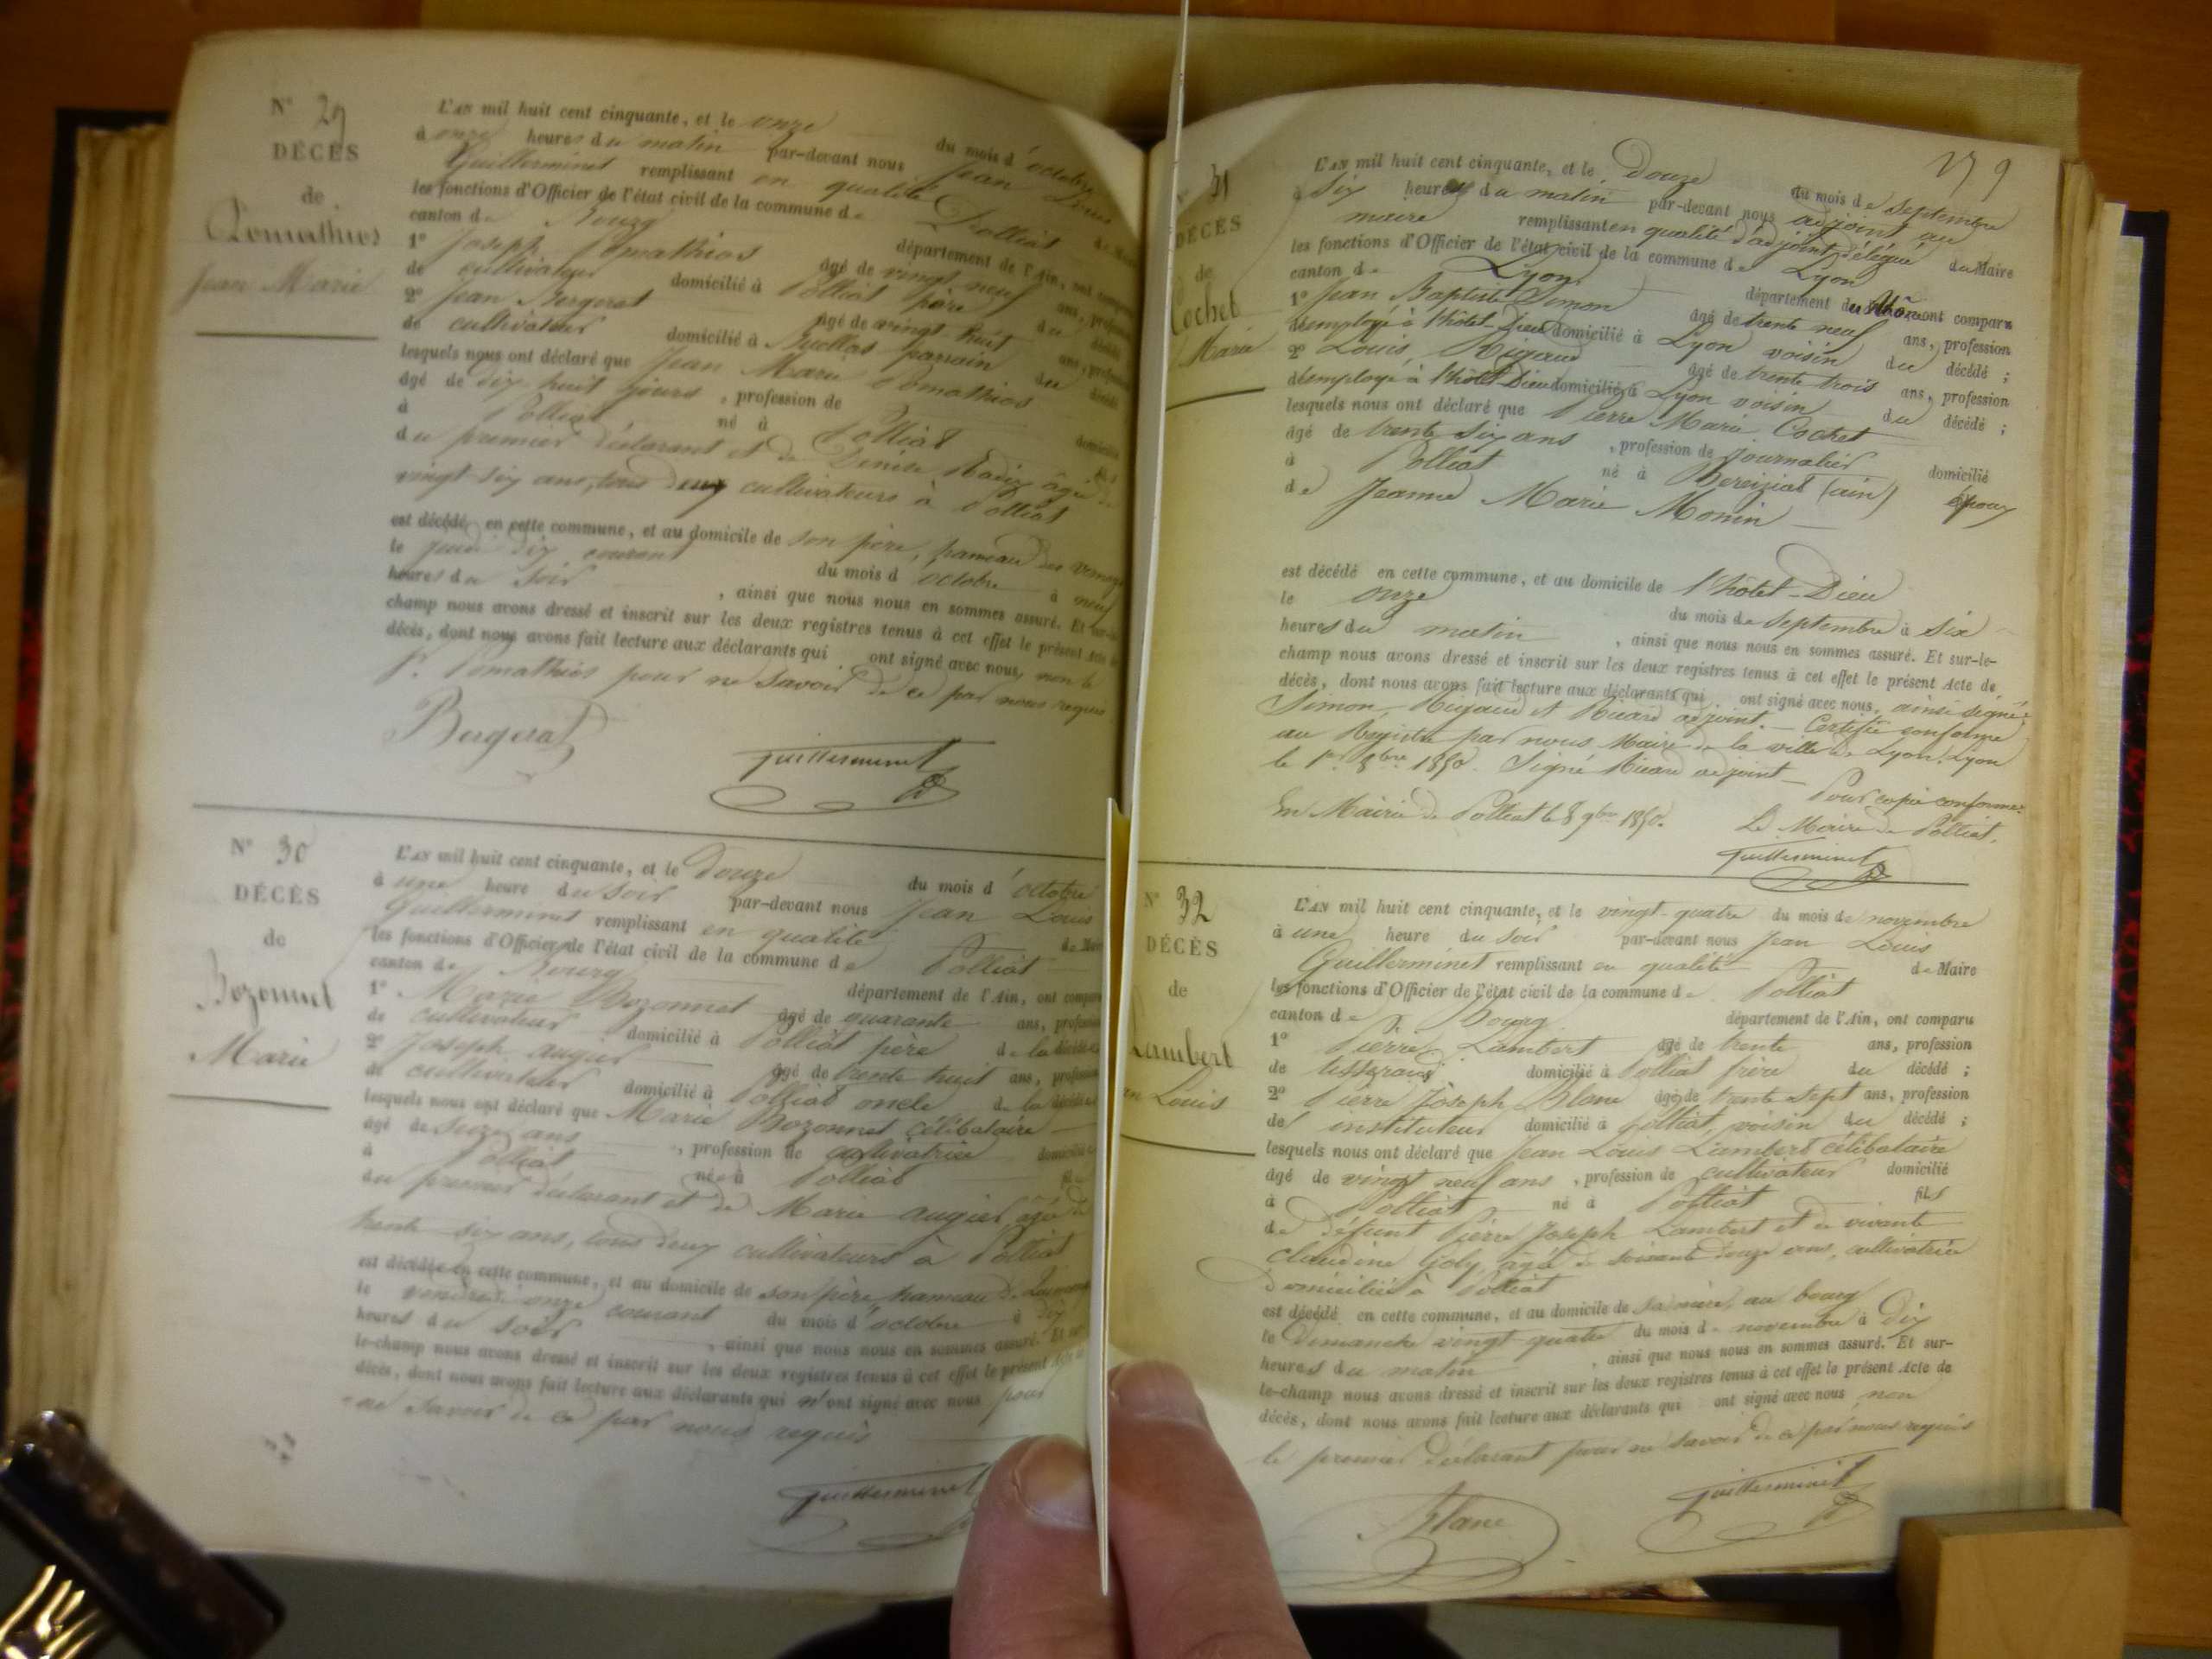 N° 29
DÉCÈS
de
Pomathios
Jean Marie
L'AN mil huit cent cinquante, et le onze du mois d'octobre
à onze heures du matin par-devant nous Jean Louis
Guillerminet remplissant en qualité de Maire
les fonctions d'Officier de l'état civil de la commune de Polliat
canton de Bourg département de l'Ain, ont comparu
1° Joseph Pomathios âgé de vingt neuf ans, profession
de cultivateur domicilié à Polliat père du décédé
2° Jean Bergerat âgé de vingt huit ans, profession
de cultivateur domicilié à Buellas parrain du décédé
lesquels nous ont déclaré que Jean Marie Pomathios
âgé de dix huit jours, profession de domicilié
à Polliat né à Polliat fils
du premier déclarant et de Denise Radix âgée de
vingt six ans, tous deux cultivateurs à Polliat
est décédé en cette commune, et au domicile de son père, hameau des
le jeudi dix courant du mois d'octobre à neuf
heures du soir, ainsi que nous nous en sommes assuré. Et sur-le-
champ nous avons dressé et inscrit sur les deux registres tenus à cet effet le présent Acte de
décès, dont nous avons fait lecture aux déclarants qui ont signé avec nous, non le
P. Pomathios pour ne savoir de ce par nous requis
Bergerat
Guillerminet
N° 30
DÉCÈS
de
Bozonnet
Marie
L'AN mil huit cent cinquante, et le douze du mois d'octobre
à une heure du soir par-devant nous Jean Louis
Guillerminet remplissant en qualité de Maire
les fonctions d'Officier de l'état civil de la commune de Polliat
canton de Bourg département de l'Ain, ont comparu
1° Marie Bozonnet âgé de quarante ans, profession
de cultivateur domicilié à Polliat père de la décédée
2° Joseph Augier âgé de trente huit ans, profession
de cultivateur domicilié à Polliat oncle de la décédée
lesquels nous ont déclaré que Marie Bozonnet célibataire
âgé de seize ans, profession de cultivatrice domiciliée
à Polliat née à Polliat fille
du premier déclarant et de Marie Augier âgée de
trente six ans, tous deux cultivateurs à Polliat
est décédée en cette commune, et au domicile de son père hameau de
le vendredi onze courant du mois d'octobre à dix
heures du soir, ainsi que nous nous en sommes assuré. Et sur-
le-champ nous avons dressé et inscrit sur les deux registres tenus à cet effet le présent Acte de
décès, dont nous avons fait lecture aux déclarants qui n'ont signé avec nous pour
ne savoir de ce par nous requis
Guillerminet
179
N° 31
DÉCÈS
de
Cochet
Marie
L'AN mil huit cent cinquante, et le Douze du mois de septembre
à six heures du matin par-devant nous adjoint au
maire remplissant en qualité d'adjoint délégué du Maire
les fonctions d'Officier de l'état civil de la commune de Lyon
canton de Lyon département du Rhône ont comparu
1° Jean Baptiste Simon âgé de trente neuf ans, profession
d'employé à l'hôtel-Dieu domicilié à Lyon voisin du décédé ;
2° Louis Rigaud âgé de trente trois ans, profession
d'employé à l'hôtel-Dieu domicilié à Lyon voisin du décédé ;
lesquels nous ont déclaré que Pierre Marie Cochet
âgé de trente six ans, profession de journalier domicilié
à Polliat né à Bereiziat (ain) époux
de Jeanne Marie Monin
est décédé en cette commune, et au domicile de l'hôtel-Dieu
le onze du mois de septembre à six
heures du matin, ainsi que nous nous en sommes assuré. Et sur-le-
champ nous avons dressé et inscrit sur les deux registres tenus à cet effet le présent Acte de
décès, dont nous avons fait lecture aux déclarants qui ont signé avec nous, ainsi signé:
Simon, Rigaud et Ricard adjoint. Certifié conforme
au Registre par nous Maire de la ville de Lyon. Lyon
le 1er 8bre 1850. Signé Ricard adjoint
Pour copie conforme:
En Mairie de Polliat le 8 9bre 1850. Le Maire de Polliat,
Guillerminet
N° 32
DÉCÈS
de
Lambert
Louis
L'AN mil huit cent cinquante, et le vingt-quatre du mois de novembre
à une heure du soir par-devant nous Jean Louis
Guillerminet remplissant en qualité de Maire
les fonctions d'Officier de l'état civil de la commune de Polliat
canton de Bourg département de l'Ain, ont comparu
1° Pierre Lambert âgé de trente ans, profession
de tisserand domicilié à Polliat frère du décédé ;
2° Pierre Joseph Blanc âgé de trente sept ans, profession
de instituteur domicilié à Polliat, voisin du décédé ;
lesquels nous ont déclaré que Jean Louis Lambert célibataire
âgé de vingt neuf ans, profession de cultivateur domicilié
à Polliat né à Polliat fils
de défunt Pierre Joseph Lambert et de vivante
Claudine Goly, âgée de soixante douze ans, cultivatrice
domiciliée à Polliat
est décédé en cette commune, et au domicile de sa mère, au bourg
le Dimanche vingt-quatre du mois de novembre à dix
heures du matin, ainsi que nous nous en sommes assuré. Et sur-
le-champ nous avons dressé et inscrit sur les deux registres tenus à cet effet le présent Acte de
décès, dont nous avons fait lecture aux déclarants qui ont signé avec nous non
le premier déclarant pour ne savoir de ce par nous requis
Blanc
Guillerminet